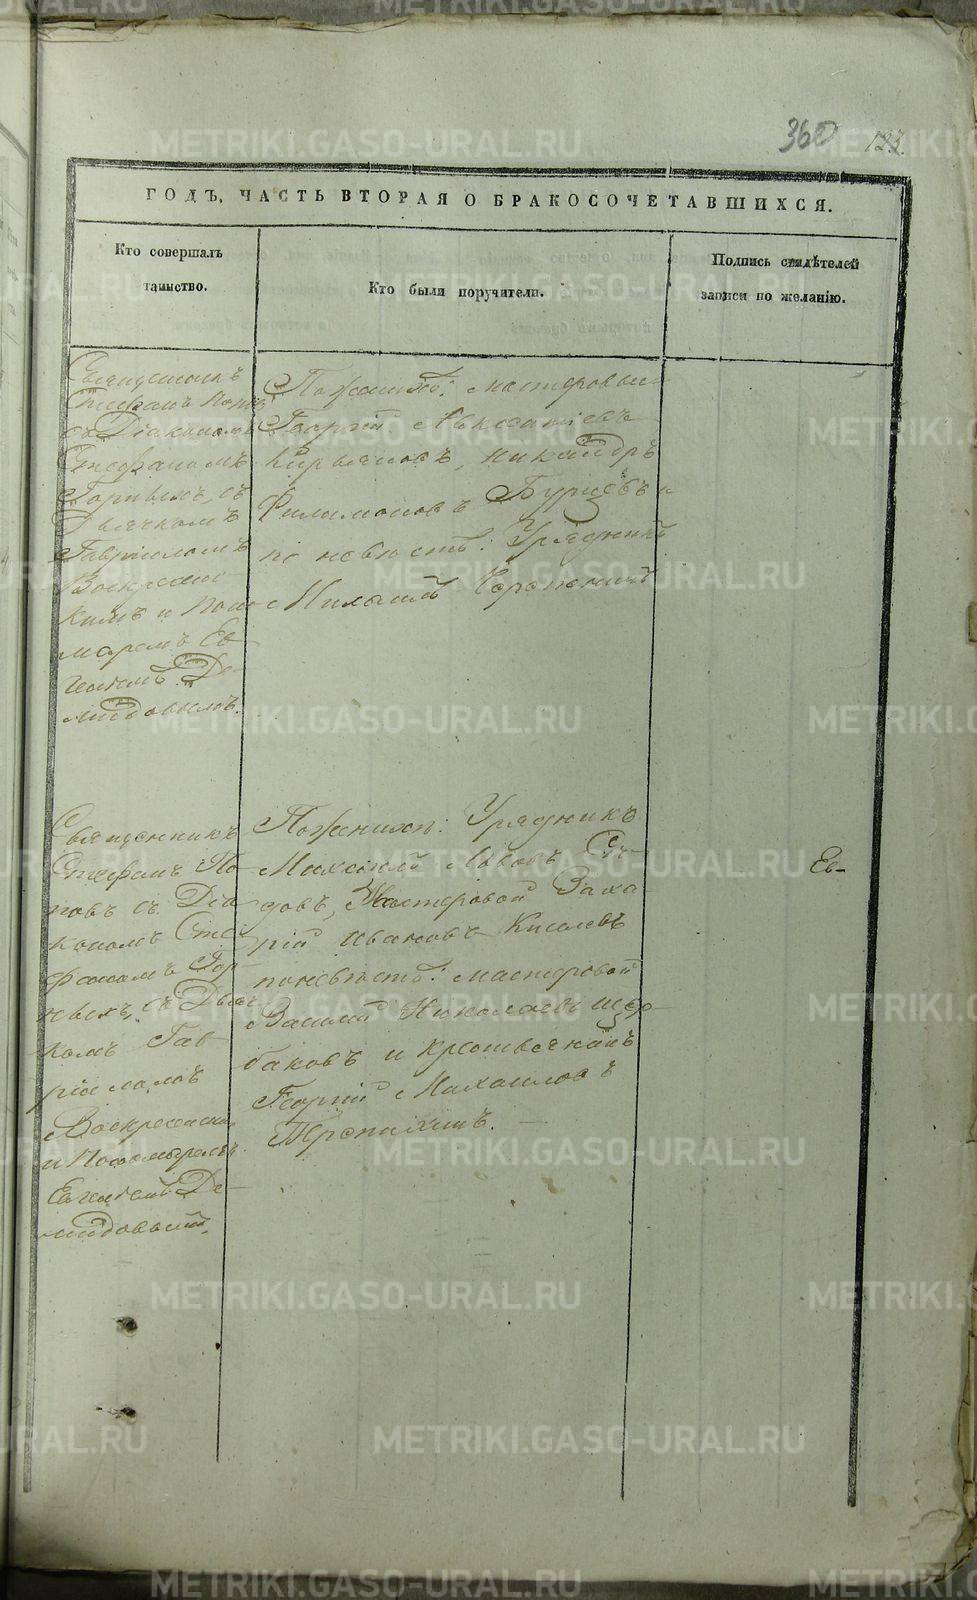 360 123.
ГОДЪ, ЧАСТЬ ВТОРАЯ О БРАКОСОЧЕТАВШИХСЯ.
Кто совершалъ
таинство.
Кто были поручители.
Подпись свидѣтелей
записи по желанію.
Священникъ
Стефанъ Попов
съ Діакономъ
Стефаномъ
Горныхъ, съ
Дьячкомъ
Гавриломъ
Воскресенс
кимъ и Поно
маремъ Ев
геніемъ Де-
мидовымъ.
По женихѣ: мастеровые
Георгій Авксентьевъ
Кирьяновъ, Никандръ
Филимоновъ Бурцевъ и
по невѣстѣ: Урядникъ
Михаилъ Черепанов
Священникъ
Стефанъ По-
повъ съ Діа
кономъ Сте
фаномъ Гор-
ныхъ, съ Дьяч
комъ Гав
ріиломъ
Воскресенски
и Пономаремъ
Евгеніемъ Де-
мидовымъ.
По женихѣ: Урядникъ
Михаилъ Львовъ Сѣ-
довъ, Мастеровой Заха
рій Ивановъ Киселевъ
по невѣстѣ: мастеровой
Василій Николаевъ Щер-
баковъ и крестьянинъ
Георгій Михаиловъ
Терепихинъ.
Ев-
METRIKI.GASO-URAL.RU